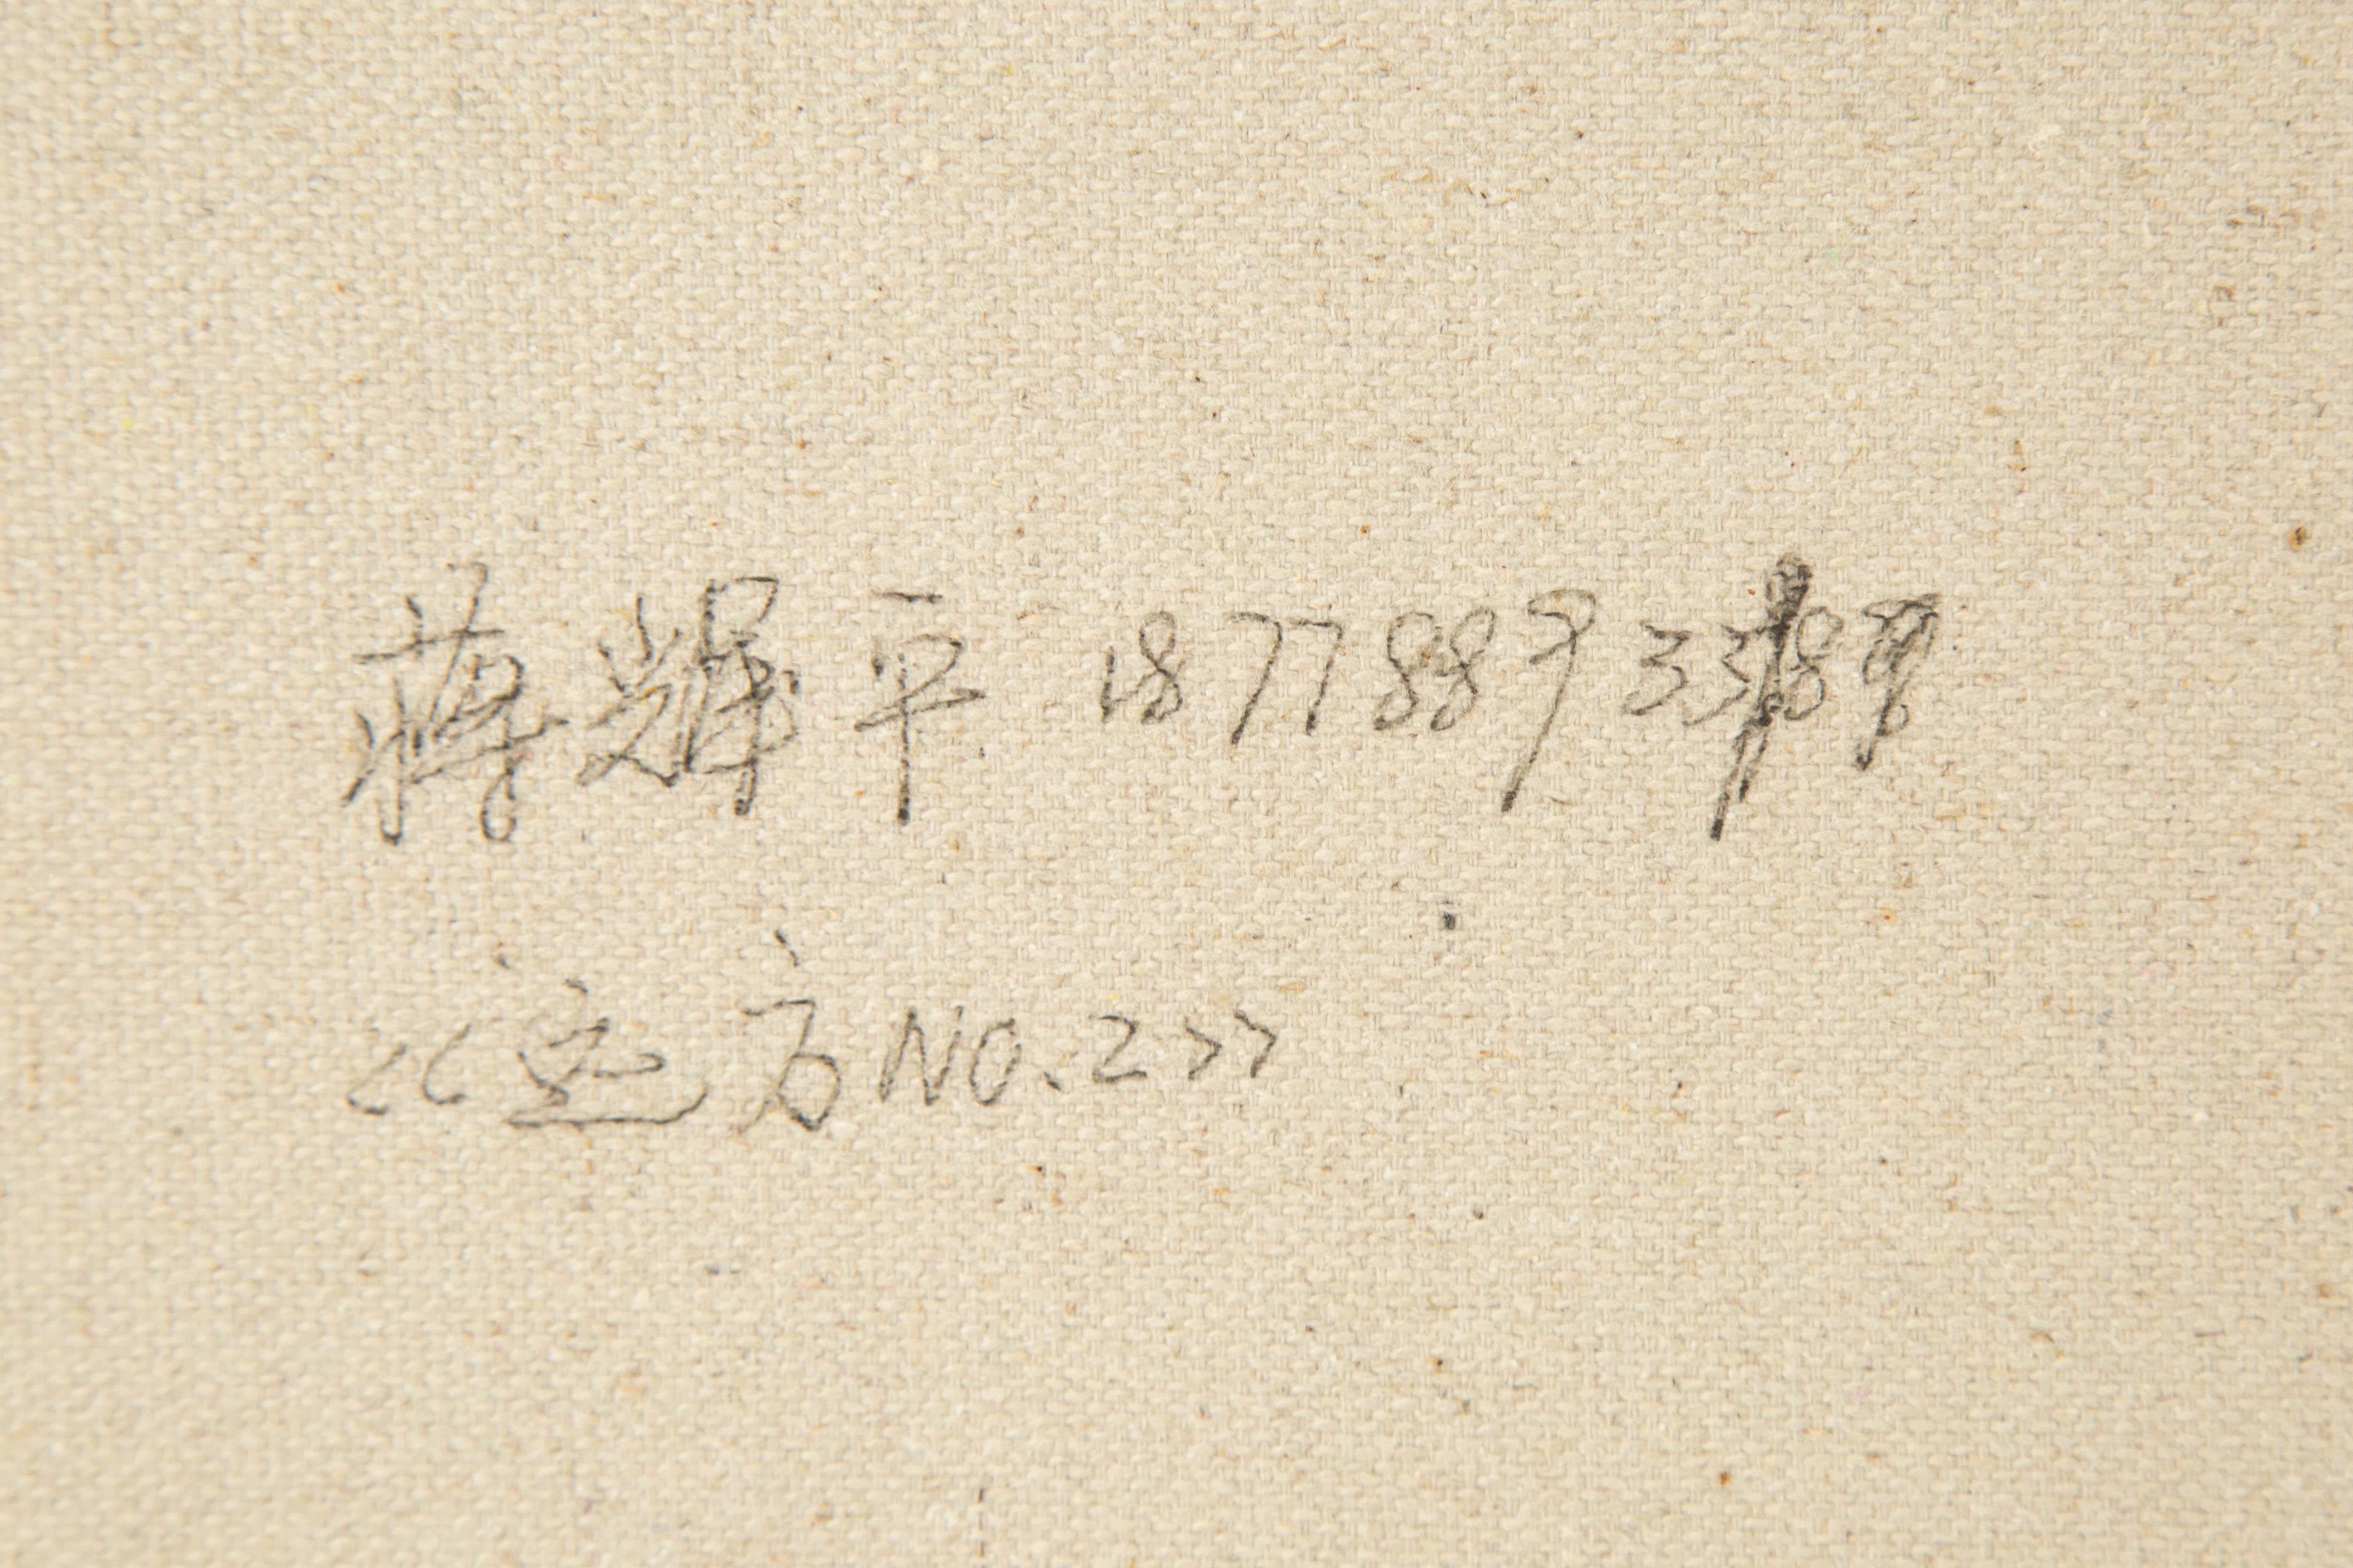 蒋辉平 1877889338
《远方NO.2》